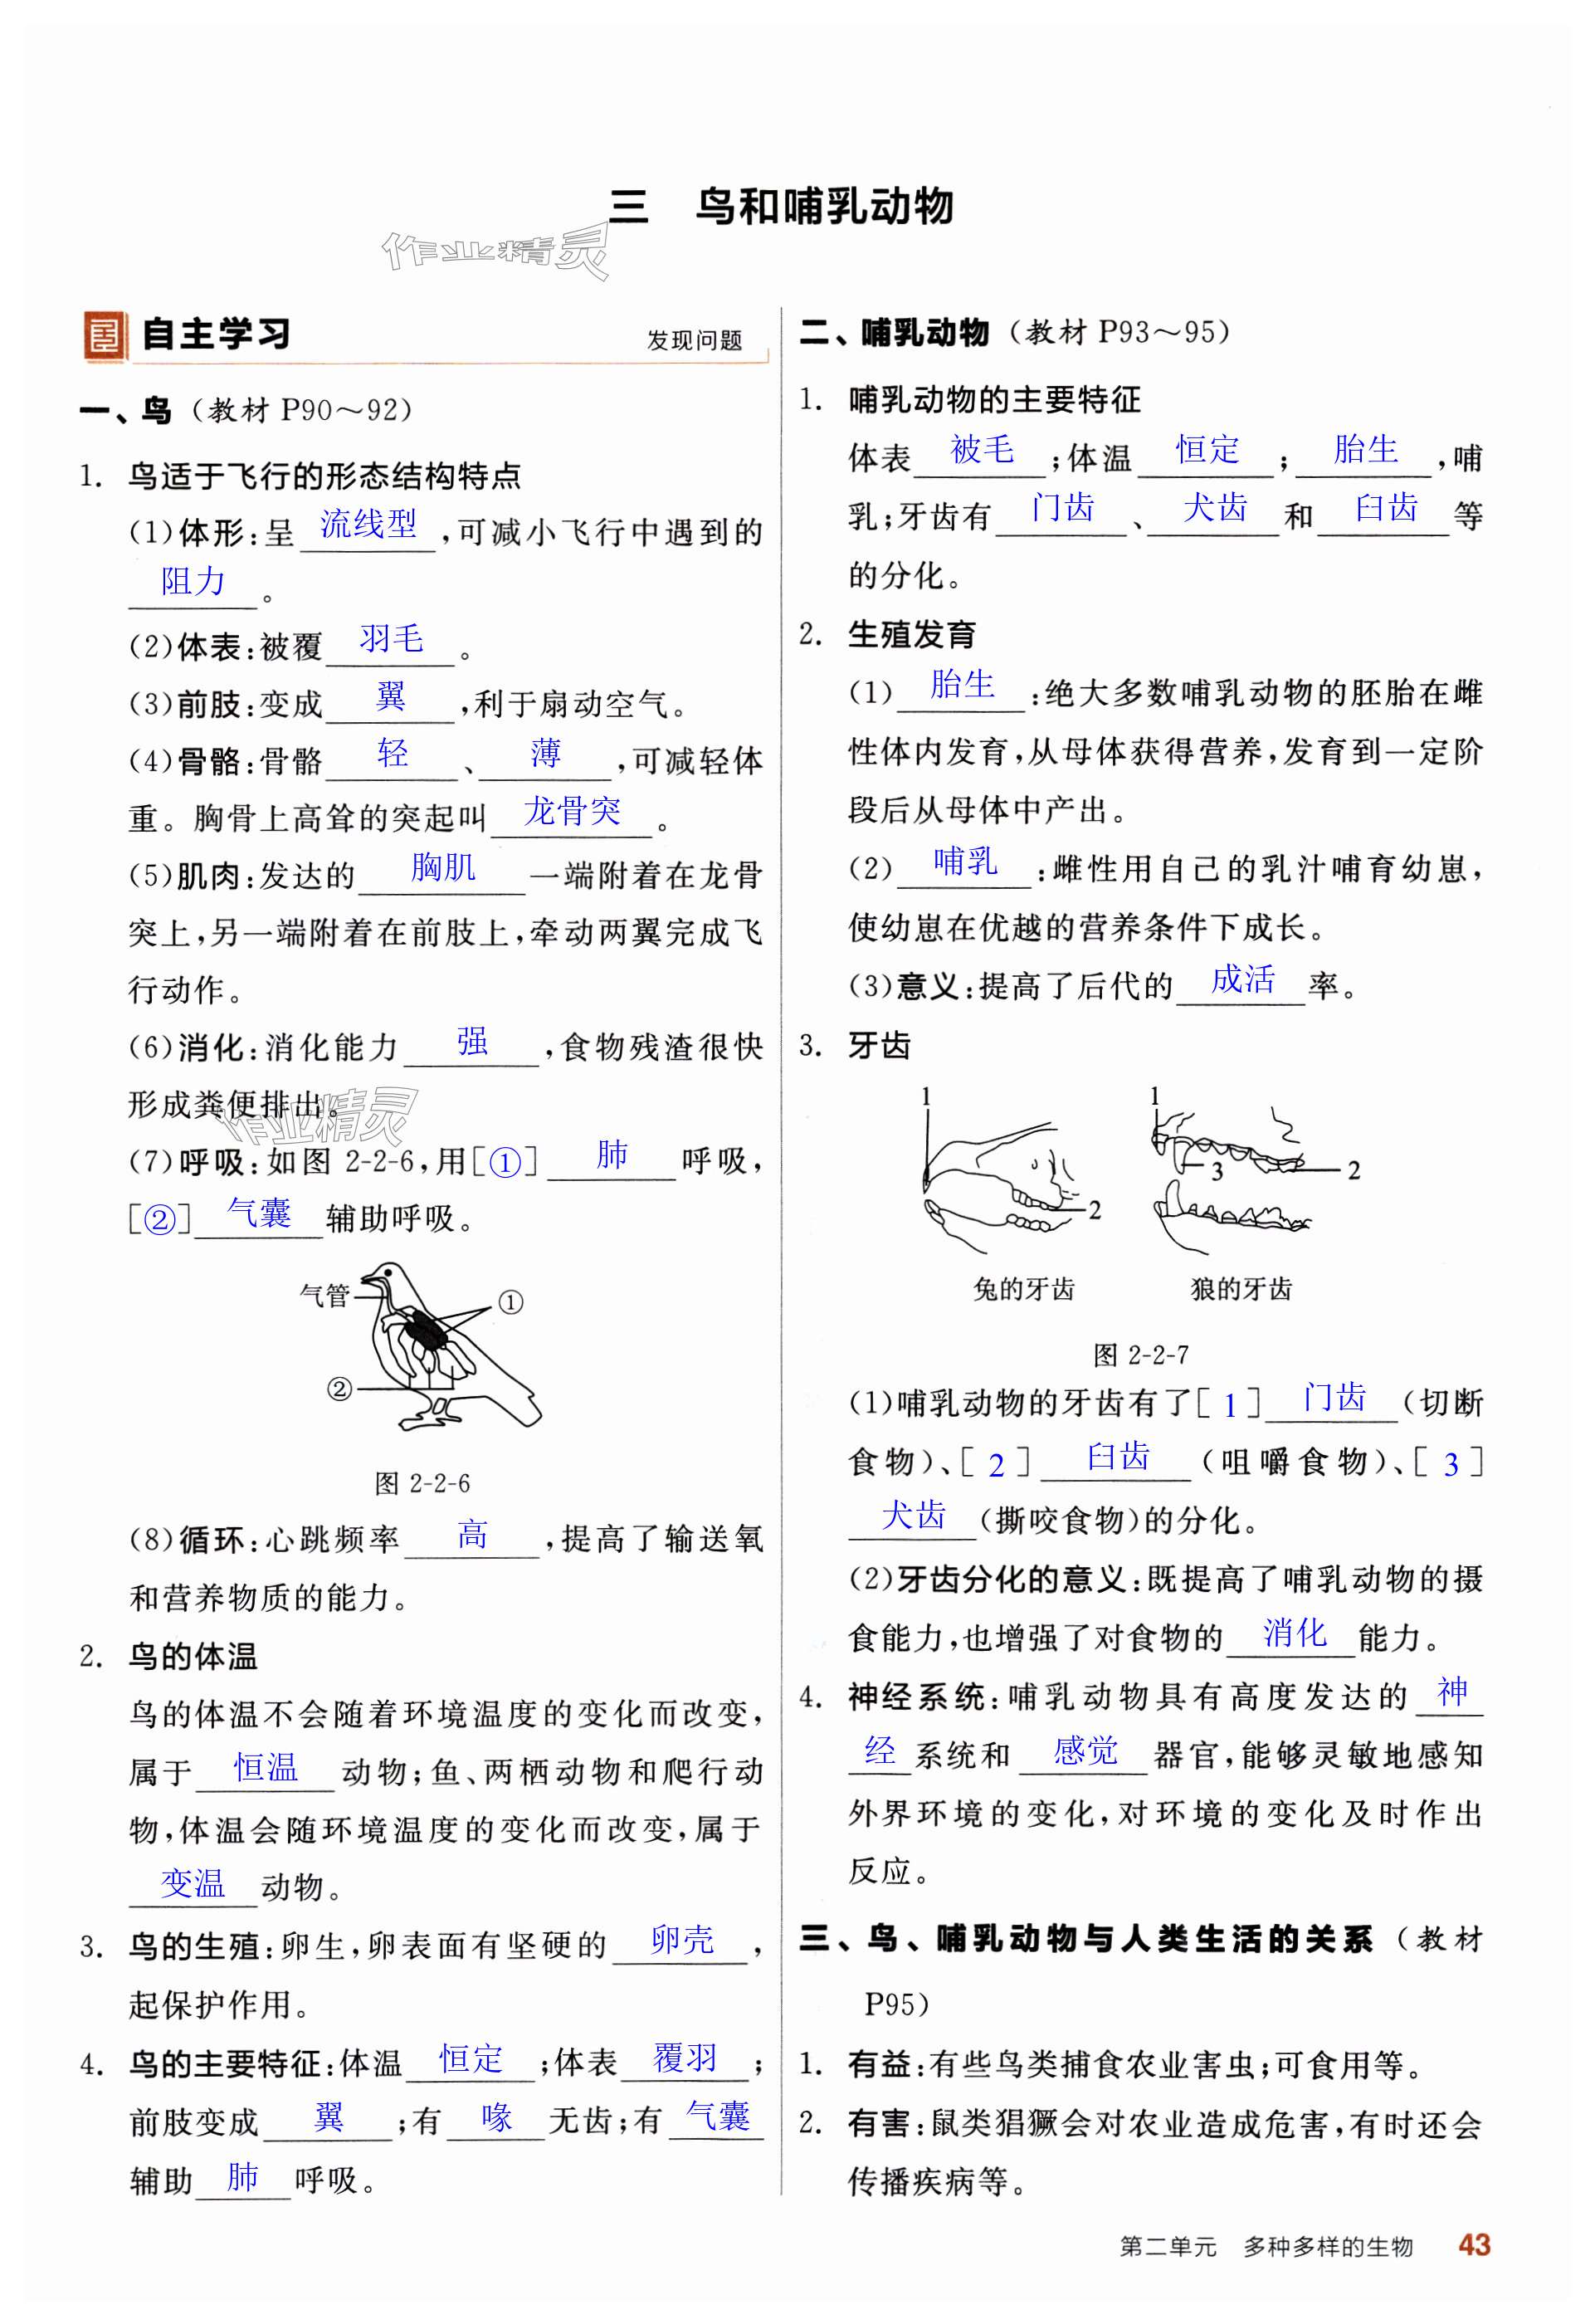 三 鸟和哺乳动物
作业精灵
自主学习 发现问题
一、鸟（教材 P90～92）
1. 鸟适于飞行的形态结构特点
(1)体形:呈 流线型 ,可减小飞行中遇到的
阻力 。
(2)体表:被覆 羽毛 。
(3)前肢:变成 翼 ,利于扇动空气。
(4)骨骼:骨骼 轻 、 薄 ,可减轻体
重。胸骨上高耸的突起叫 龙骨突 。
(5)肌肉:发达的 胸肌 一端附着在龙骨
突上,另一端附着在前肢上,牵动两翼完成飞
行动作。
(6)消化:消化能力 强 ,食物残渣很快
形成粪便排出。
作业精灵
(7)呼吸:如图 2-2-6,用[①] 肺 呼吸,
[②] 气囊 辅助呼吸。
气管
①
②
图 2-2-6
(8)循环:心跳频率 高 ,提高了输送氧
和营养物质的能力。
2. 鸟的体温
鸟的体温不会随着环境温度的变化而改变,
属于 恒温 动物;鱼、两栖动物和爬行动
物,体温会随环境温度的变化而改变,属于
变温 动物。
3. 鸟的生殖:卵生,卵表面有坚硬的 卵壳 ,
起保护作用。
4. 鸟的主要特征:体温 恒定 ;体表 覆羽 ;
前肢变成 翼 ;有 喙 无齿;有 气囊
辅助 肺 呼吸。
二、哺乳动物（教材 P93～95）
1. 哺乳动物的主要特征
体表 被毛 ;体温 恒定 ; 胎生 ,哺
乳;牙齿有 门齿 、 犬齿 和 臼齿 等
的分化。
2. 生殖发育
(1) 胎生 :绝大多数哺乳动物的胚胎在雌
性体内发育,从母体获得营养,发育到一定阶
段后从母体中产出。
(2) 哺乳 :雌性用自己的乳汁哺育幼崽,
使幼崽在优越的营养条件下成长。
(3)意义:提高了后代的 成活 率。
3. 牙齿
1 1
3 2
2
兔的牙齿 狼的牙齿
图 2-2-7
(1)哺乳动物的牙齿有了[ 1 ] 门齿 (切断
食物)、[ 2 ] 臼齿 (咀嚼食物)、[ 3 ]
犬齿 (撕咬食物)的分化。
(2)牙齿分化的意义:既提高了哺乳动物的摄
食能力,也增强了对食物的 消化 能力。
4. 神经系统:哺乳动物具有高度发达的 神
经 系统和 感觉 器官,能够灵敏地感知
外界环境的变化,对环境的变化及时作出
反应。
三、鸟、哺乳动物与人类生活的关系（教材
P95）
1. 有益:有些鸟类捕食农业害虫;可食用等。
2. 有害:鼠类猖獗会对农业造成危害,有时还会
传播疾病等。
第二单元 多种多样的生物 43